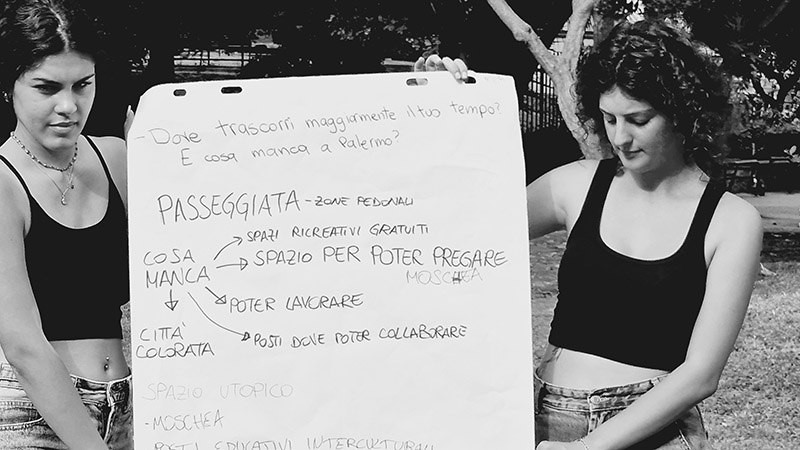 - Dove trascorri maggiormente il tuo tempo?
E cosa manca a Palermo?
PASSEGGIATA - ZONE PEDONALI
SPAZI RICREATIVI GRATUITI
COSA MANCA
SPAZIO PER POTER PREGARE
MOSCHEA
POTER LAVORARE
POSTI DOVE POTER COLLABORARE
CITTÀ
COLORATA
SPAZIO UTOPICO
- MOSCHEA
POSTI EDUCATIVI INTERCULTURALI